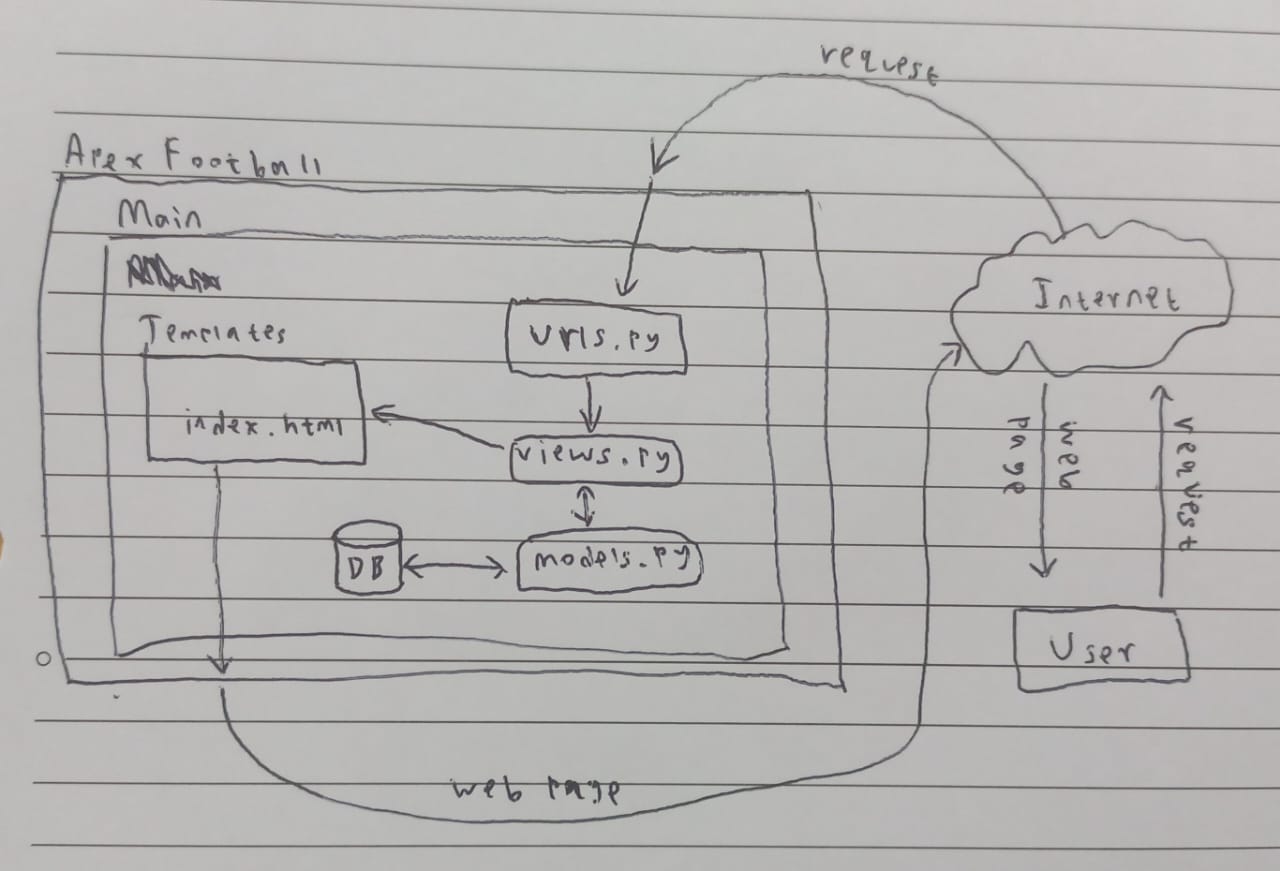 request
Apex Football
Main
Templates
index.html
urls.py
views.py
models.py
DB
Internet
web
page
request
User
web page